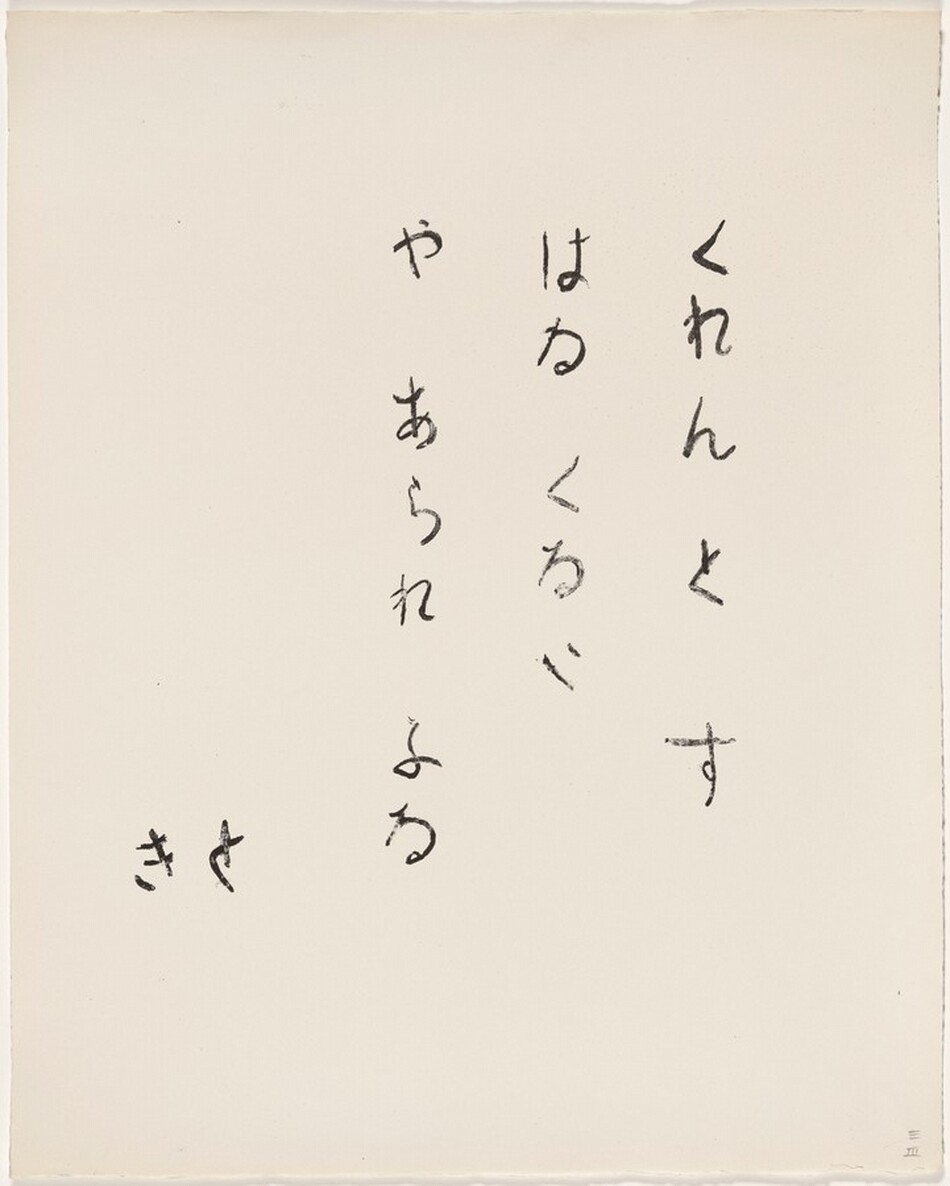 くれんと す
はる くるい
や あられ ふる
と
き
三
III